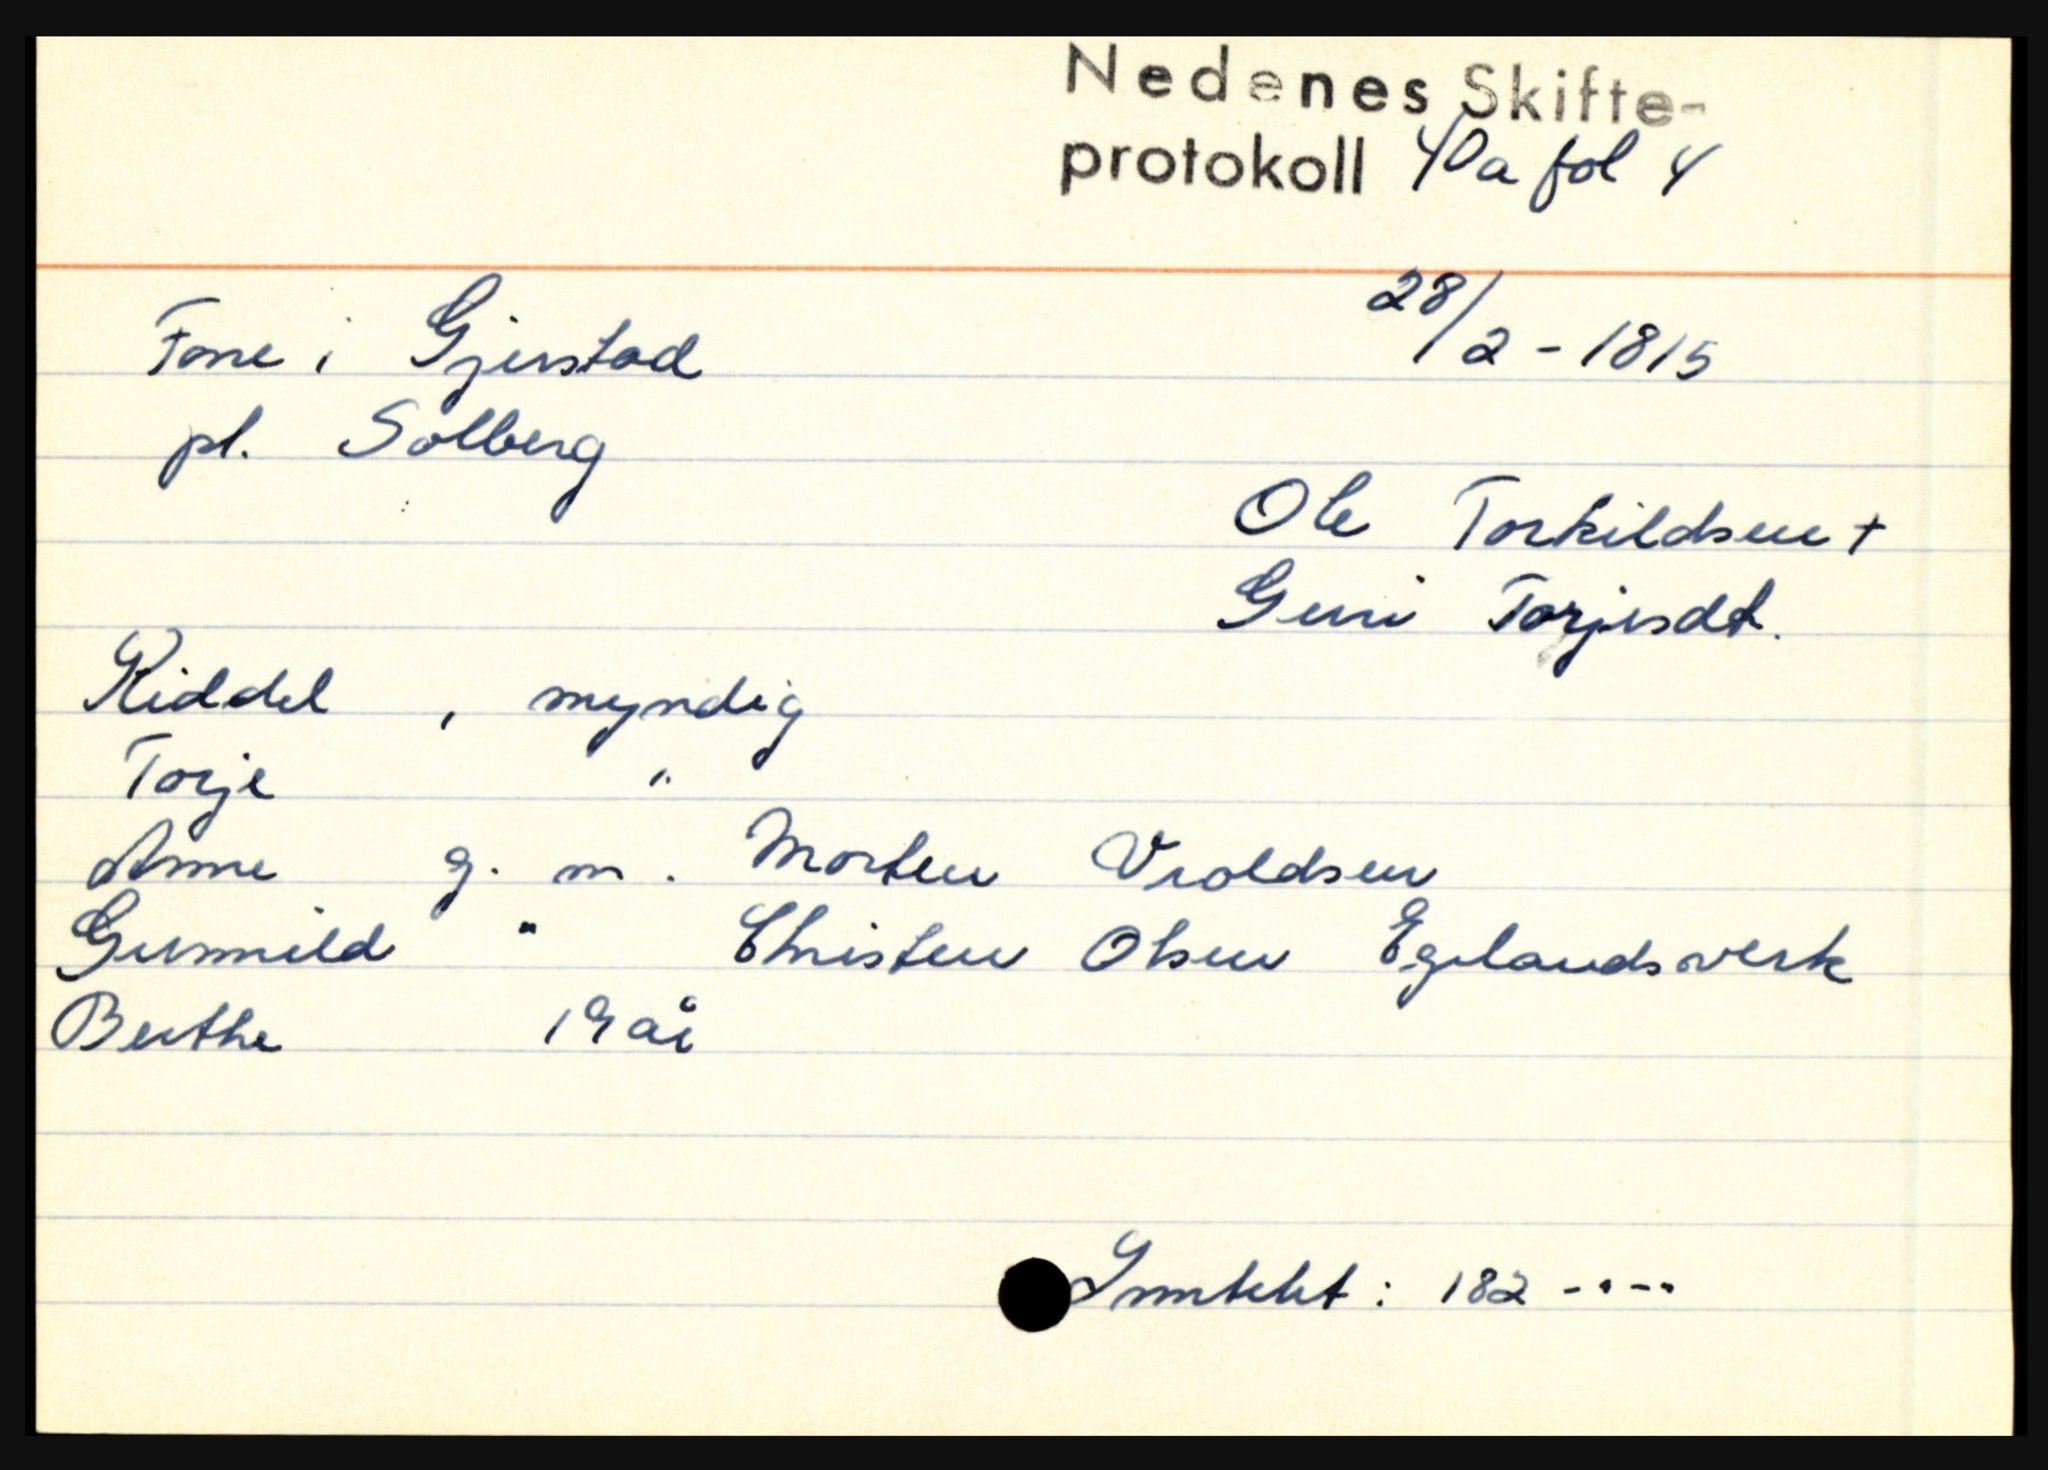 Nedenes Skifte-
protokoll 40a fol 4
Fone i Gjerstad 28/2 - 1815
pl. Solberg
Ole Torkildsen +
Guni Torjesdt.
Kiddel , myndig
Torje "
Anne g. m. Morten Vroldsen
Gunnild " Christen Olsen Egelandsverk
Berthe 19 år
Inntekt : 182 -·--